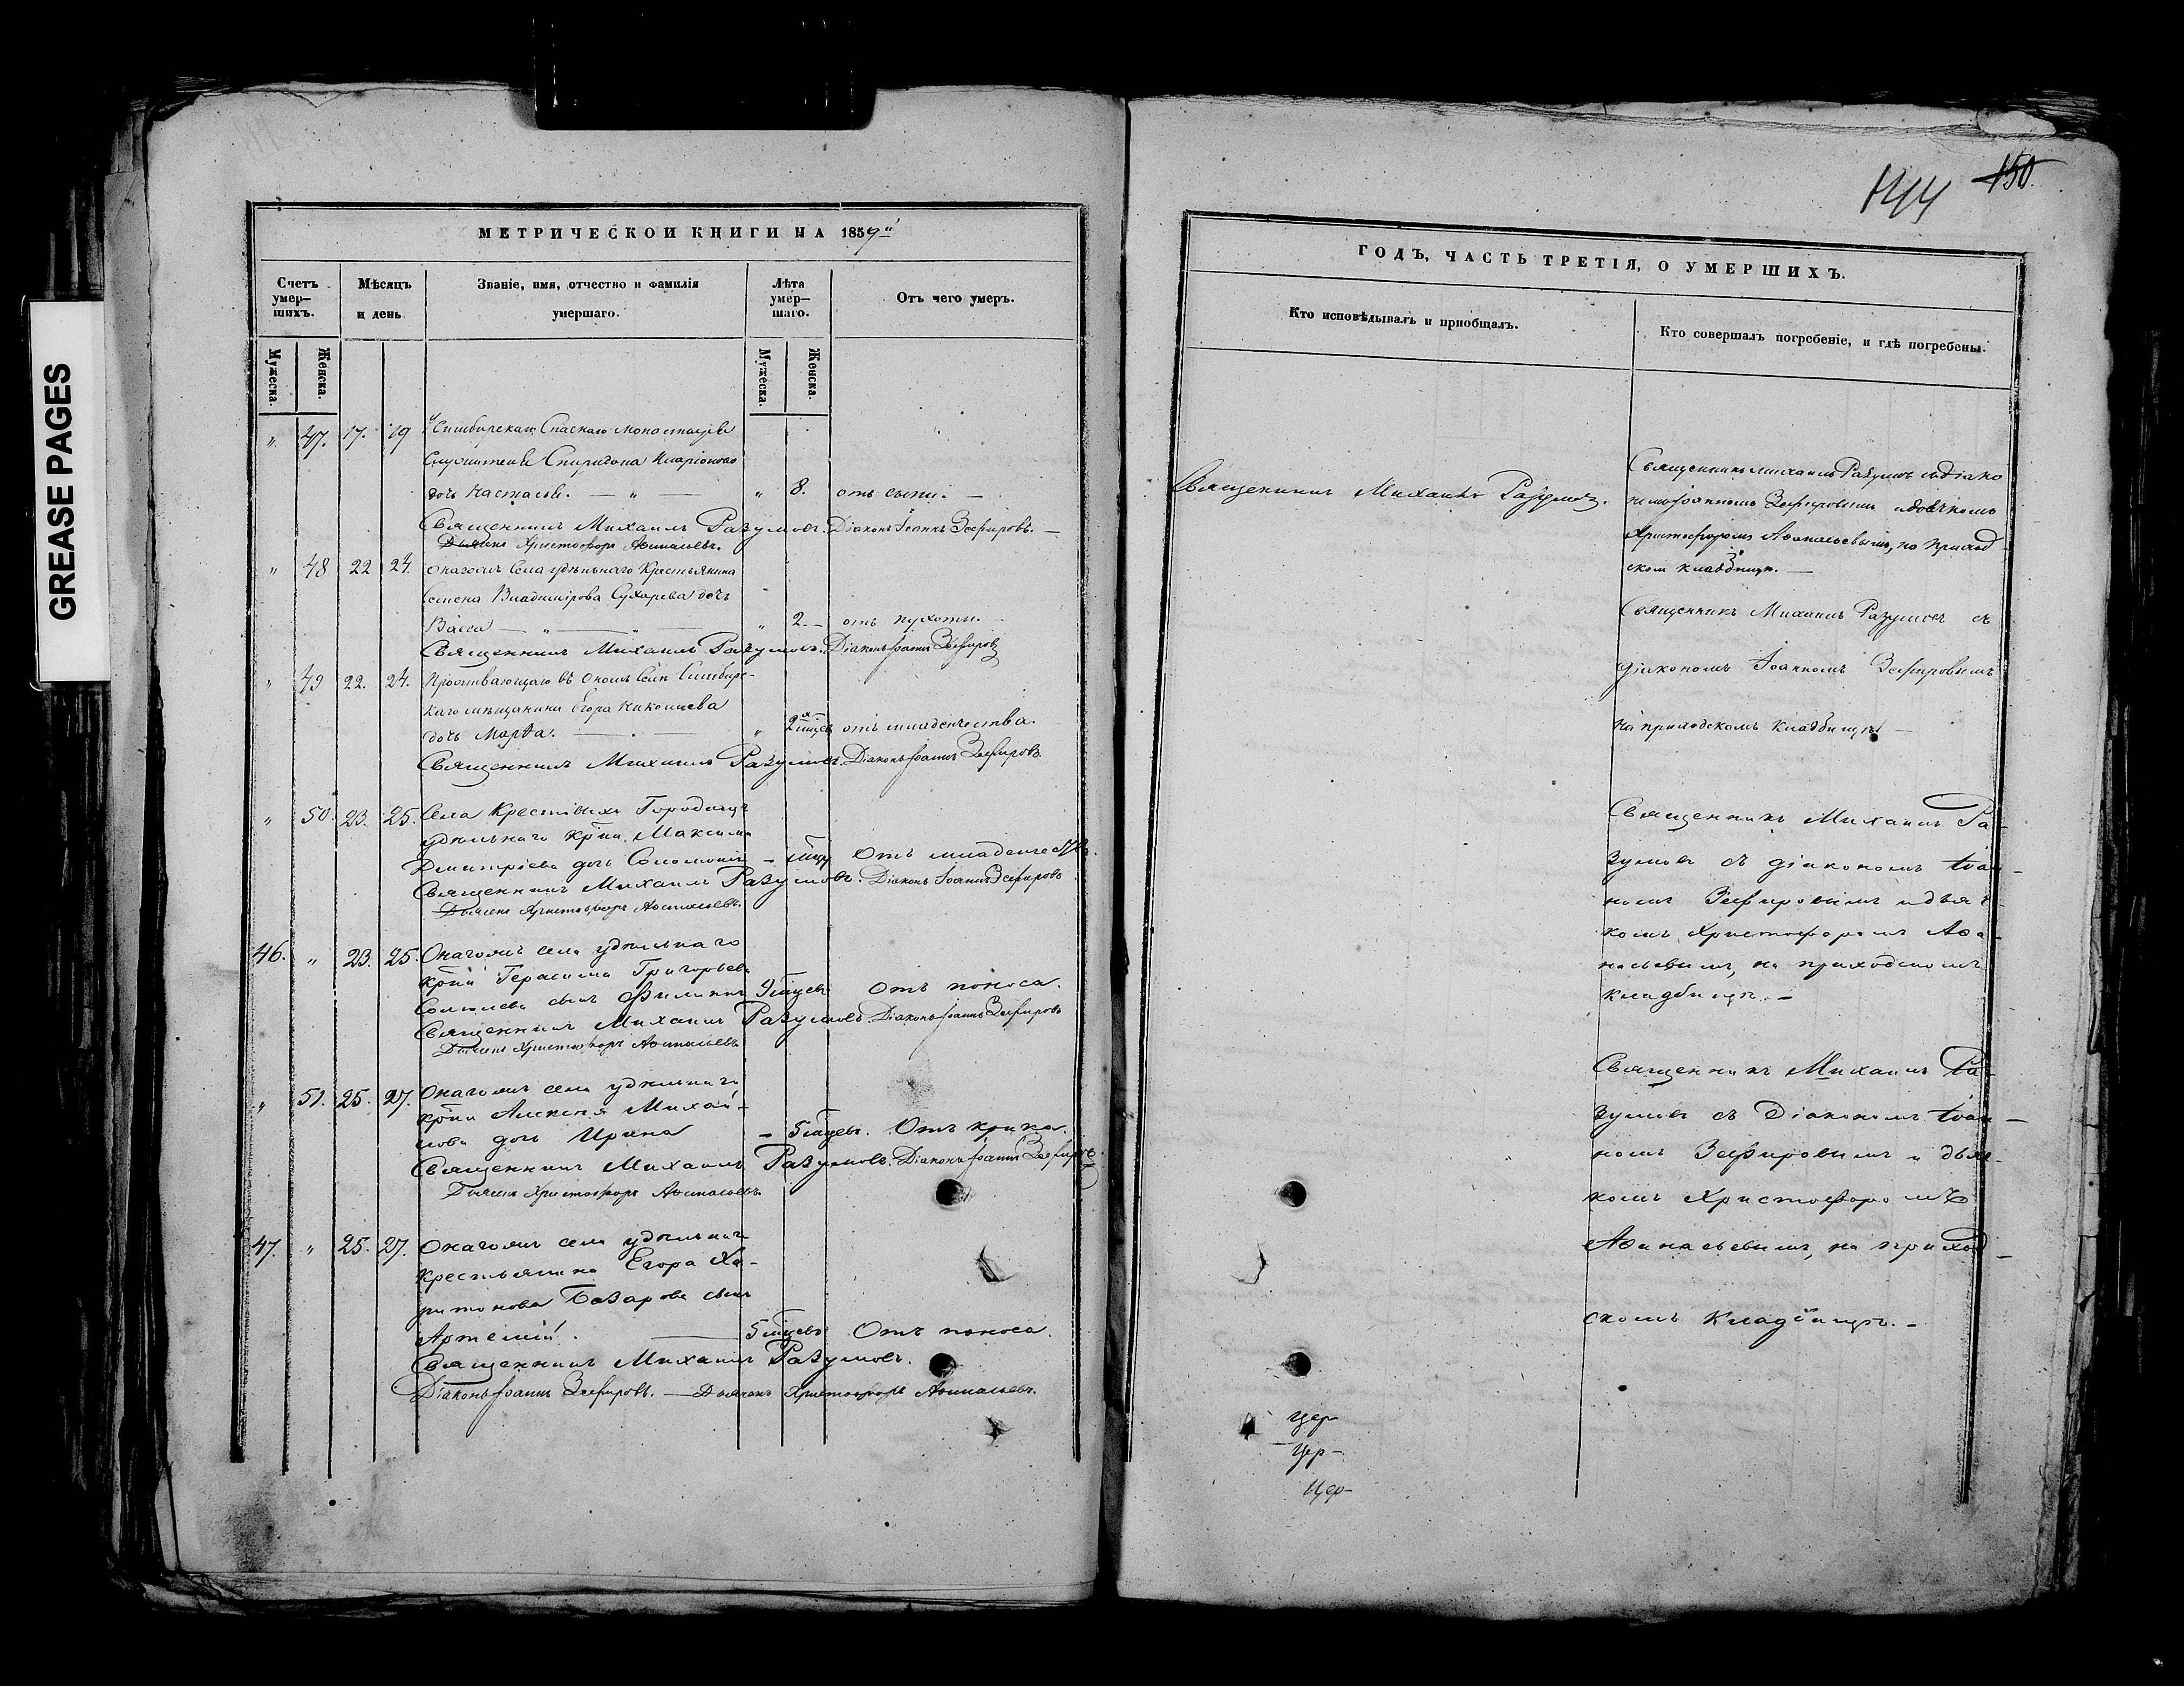 GREASE PAGES
МЕТРИЧЕСКОЙ КНИГИ НА 1859й
Счетъ умер-шихъ.
Мѣсяцъ и день
Званіе, имя, отчество и фамилія умершаго.
Лѣта умер-шаго.
Отъ чего умеръ.
Мужеска.
Женска.
Мужеска.
Женска.
" 47. 17. 19 Симбирскаго Спаскаго монастыря
служителя Спиридона Иларіонова
дочь Настасья. — " — " 8. отъ сыпи. —
Священникъ Михаилъ Разумовъ. Діаконъ Іоаннъ Зефировъ. —
Дьячекъ Христофоръ Аѳанасьевъ.
" 48 22 24. Онагожъ Села удѣльнаго Крестьянина
Семена Владимірова Сухарева дочь
Васса — " — " — " 2. — отъ сухоты.
Священникъ Михаилъ Разумовъ. Діаконъ Іоаннъ Зефировъ
" 49 22. 24. Проживающаго въ ономъ Селѣ Симбирс-
каго мѣщанина Егора Николаева
дочь Марѳа. — " 2хъ мѣсяц. отъ младенчества.
Священникъ Михаилъ Разумовъ. Діаконъ Іоаннъ Зефировъ.
" 50. 23. 25. Села Крестовыхъ Городищъ
удѣльнаго кр̅на Максима
Дмитріева дочь Соломонія — мѣцъ Отъ младенчества.
Священникъ Михаилъ Разумовъ. Діаконъ Іоаннъ Зефировъ
Дьячекъ Христофоръ Аѳанасьевъ.
46. " 23. 25. Онагожъ села удѣльнаго
кр̅на Герасима Григорьева
сынъ Филиппъ 9 мѣцевъ Отъ поноса.
Священникъ Михаилъ Разумовъ. Діаконъ Іоаннъ Зефировъ
Дьячекъ Христофоръ Аѳанасьевъ
" 51. 25. 27. Онагожъ села удѣльнаго
кр̅на Алексѣя Михай-
лова дочь Ирина — 5 мѣцевъ. Отъ крика.
Священникъ Михаилъ Разумовъ. Діаконъ Іоаннъ Зефировъ.
Дьячекъ Христофоръ Аѳанасьевъ.
47. " 25. 27. Онагожъ села удѣльнаго
крестьянина Егора Ха-
ритонова Базарова сынъ
Артемій. — 5 мѣцевъ Отъ поноса.
Священникъ Михаилъ Разумовъ.
Діаконъ Іоаннъ Зефировъ. — Дьячекъ Христофоръ Аѳанасьевъ.
144 150.
ГОДЪ, ЧАСТЬ ТРЕТІЯ, О УМЕРШИХЪ.
Кто исповѣдывалъ и пріобщалъ.
Кто совершалъ погребеніе, и гдѣ погребены.
Священникъ Михаилъ Разумовъ.
Священникъ Михаилъ Разумовъ съ діако
номъ Іоанномъ Зефировымъ и дьячкомъ
Христофоромъ Аѳанасьевымъ, на приход-
скомъ кладбищѣ. —
Священникъ Михаилъ Разумовъ съ
діакономъ Іоанномъ Зефировымъ
на приходскомъ кладбищѣ —
Священникъ Михаилъ Ра-
зумовъ съ діакономъ Іоан-
номъ Зефировымъ и дьяч-
комъ Христофоромъ Аѳа-
насьевымъ, на приходскомъ
кладбищѣ. —
Священникъ Михаилъ Ра-
зумовъ съ Діакономъ Іоан-
номъ Зефировымъ и дьяч-
комъ Христофоромъ
Аѳанасьевымъ, на приход-
скомъ кладбищѣ. —
цер
цер-
цер-